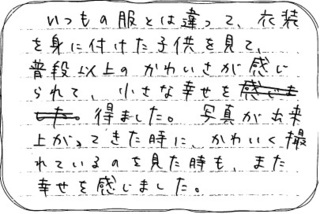 いつもの服とは違って、衣装
を身に付けた子供を見て、
普段以上のかわいさが感じ
られて、小さな幸せを感じま
した。得ました。写真が出来
上がってきた時に、かわいく撮
れているのを見た時も、また
幸せを感じました。